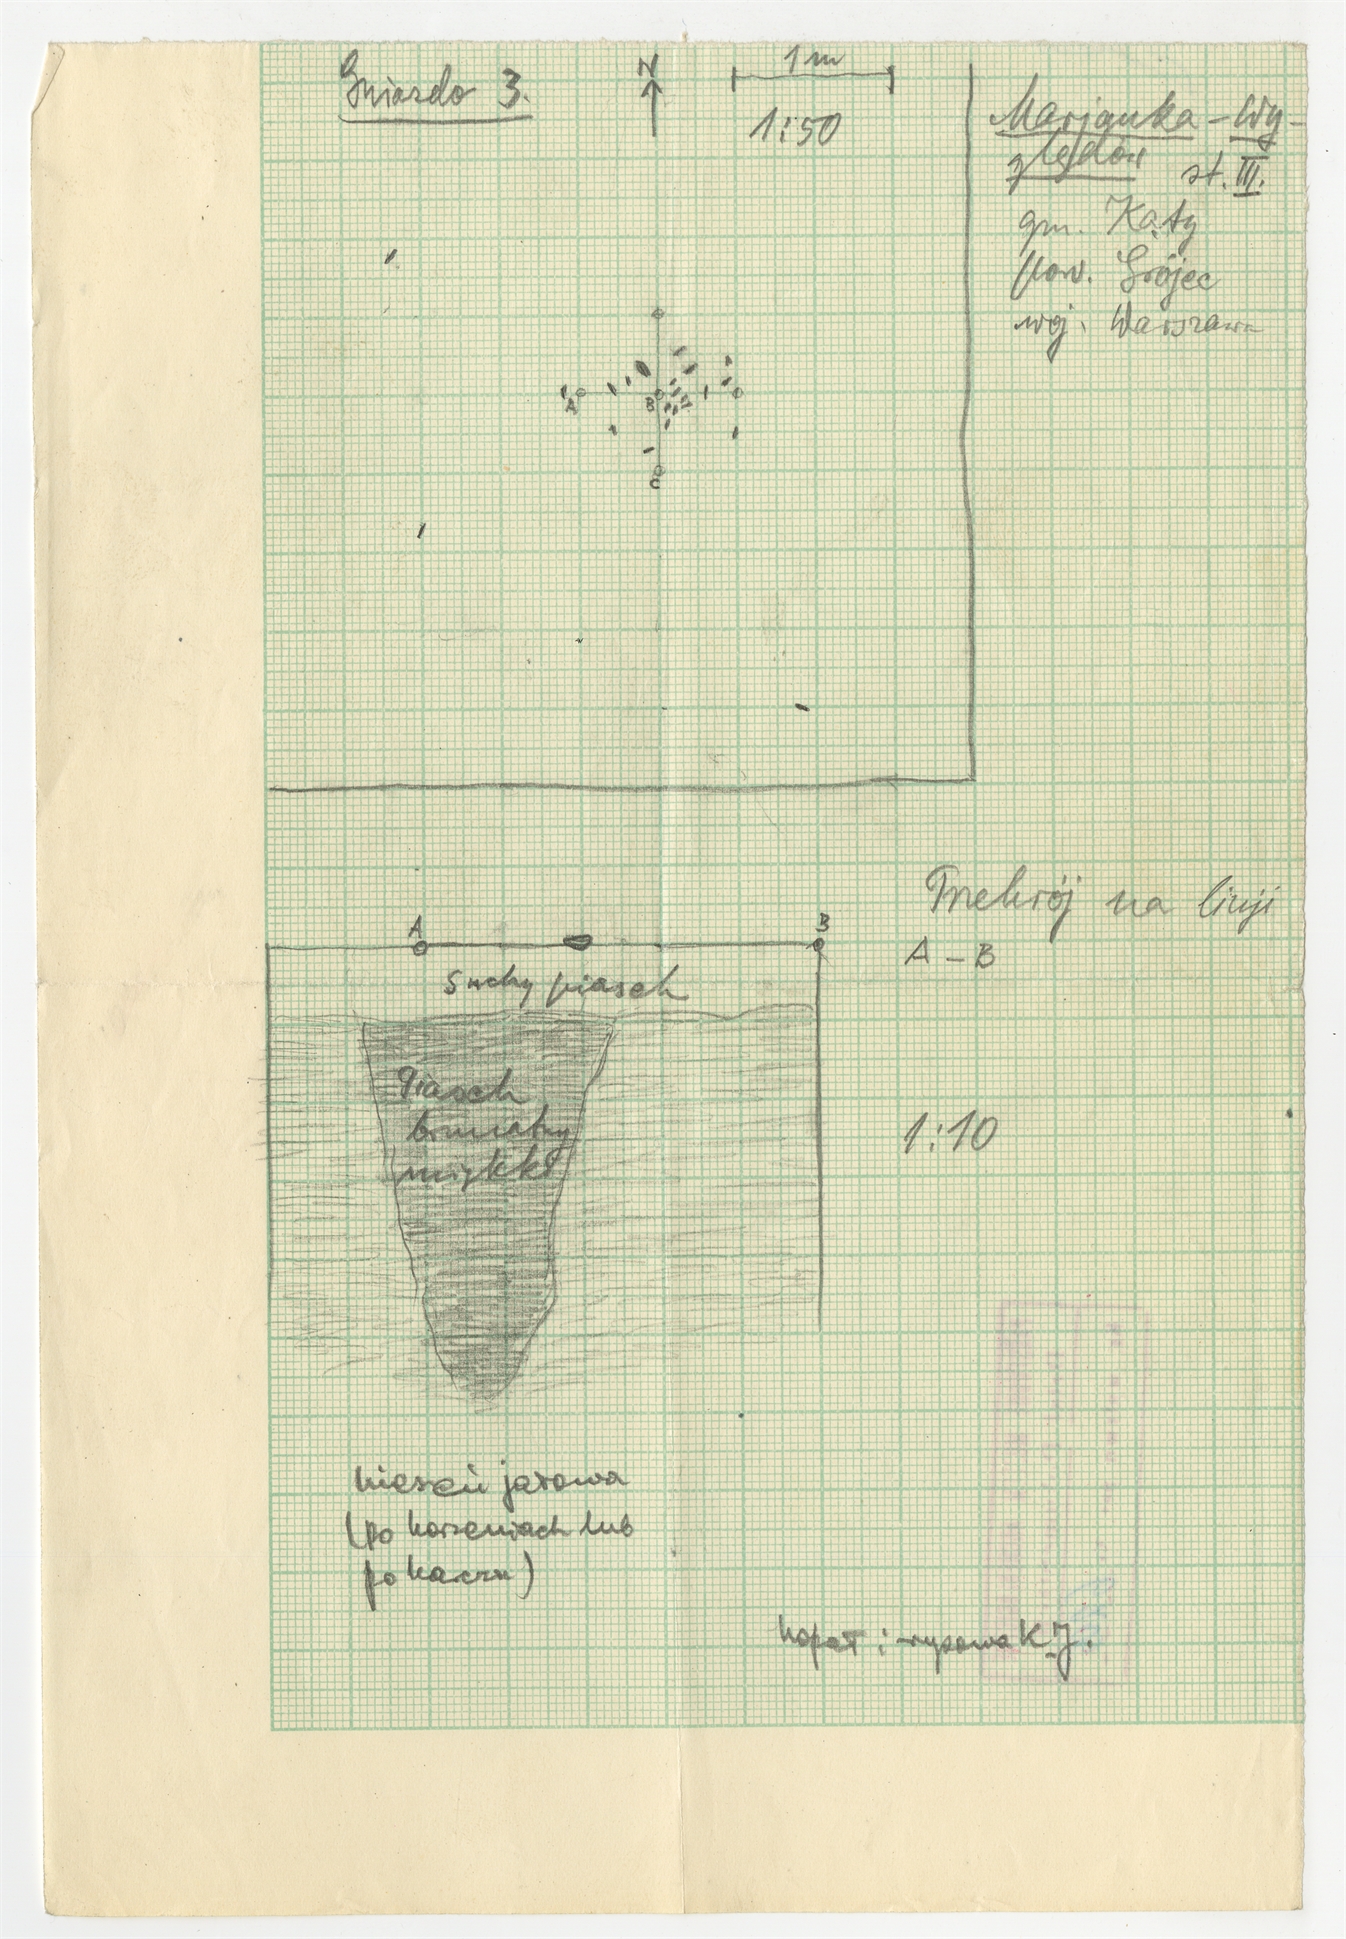 Gniazdo 3.
N
1 m
1:50
Marjanka - Wy-
ględów st. III.
gm. Kąty
pow. Grójec
woj. Warszawa
A
B
C
Przekrój na linji
A - B
A
B
Suchy piasek
Piasek
brunatny
miękki
1:10
kieszeń jarowa
(po korzeniach lub
po kaczu)
kopał i rysował K. J.